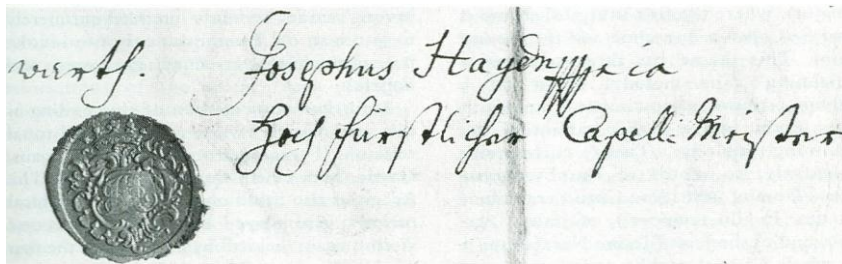 werth.
Josephus Haydn mpria
Hoch Fürstlicher Capell: Meister